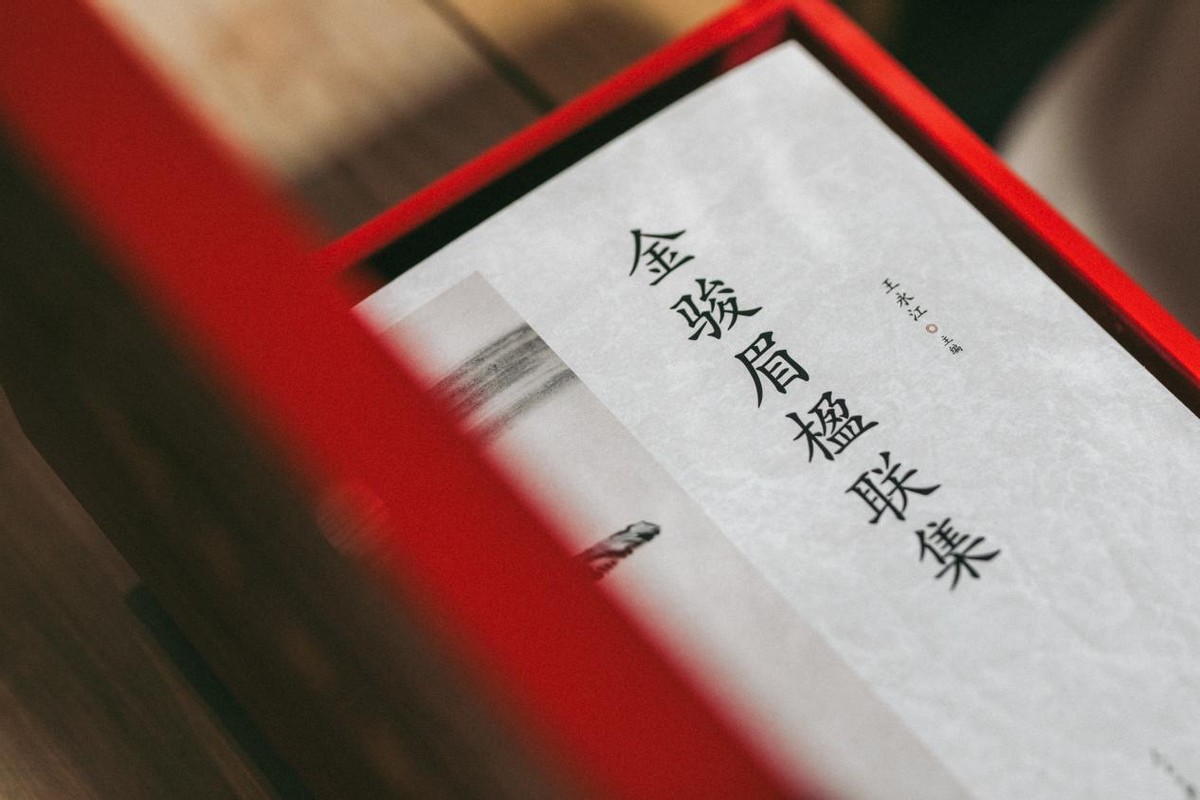 金骏眉楹联集
王永江 主编